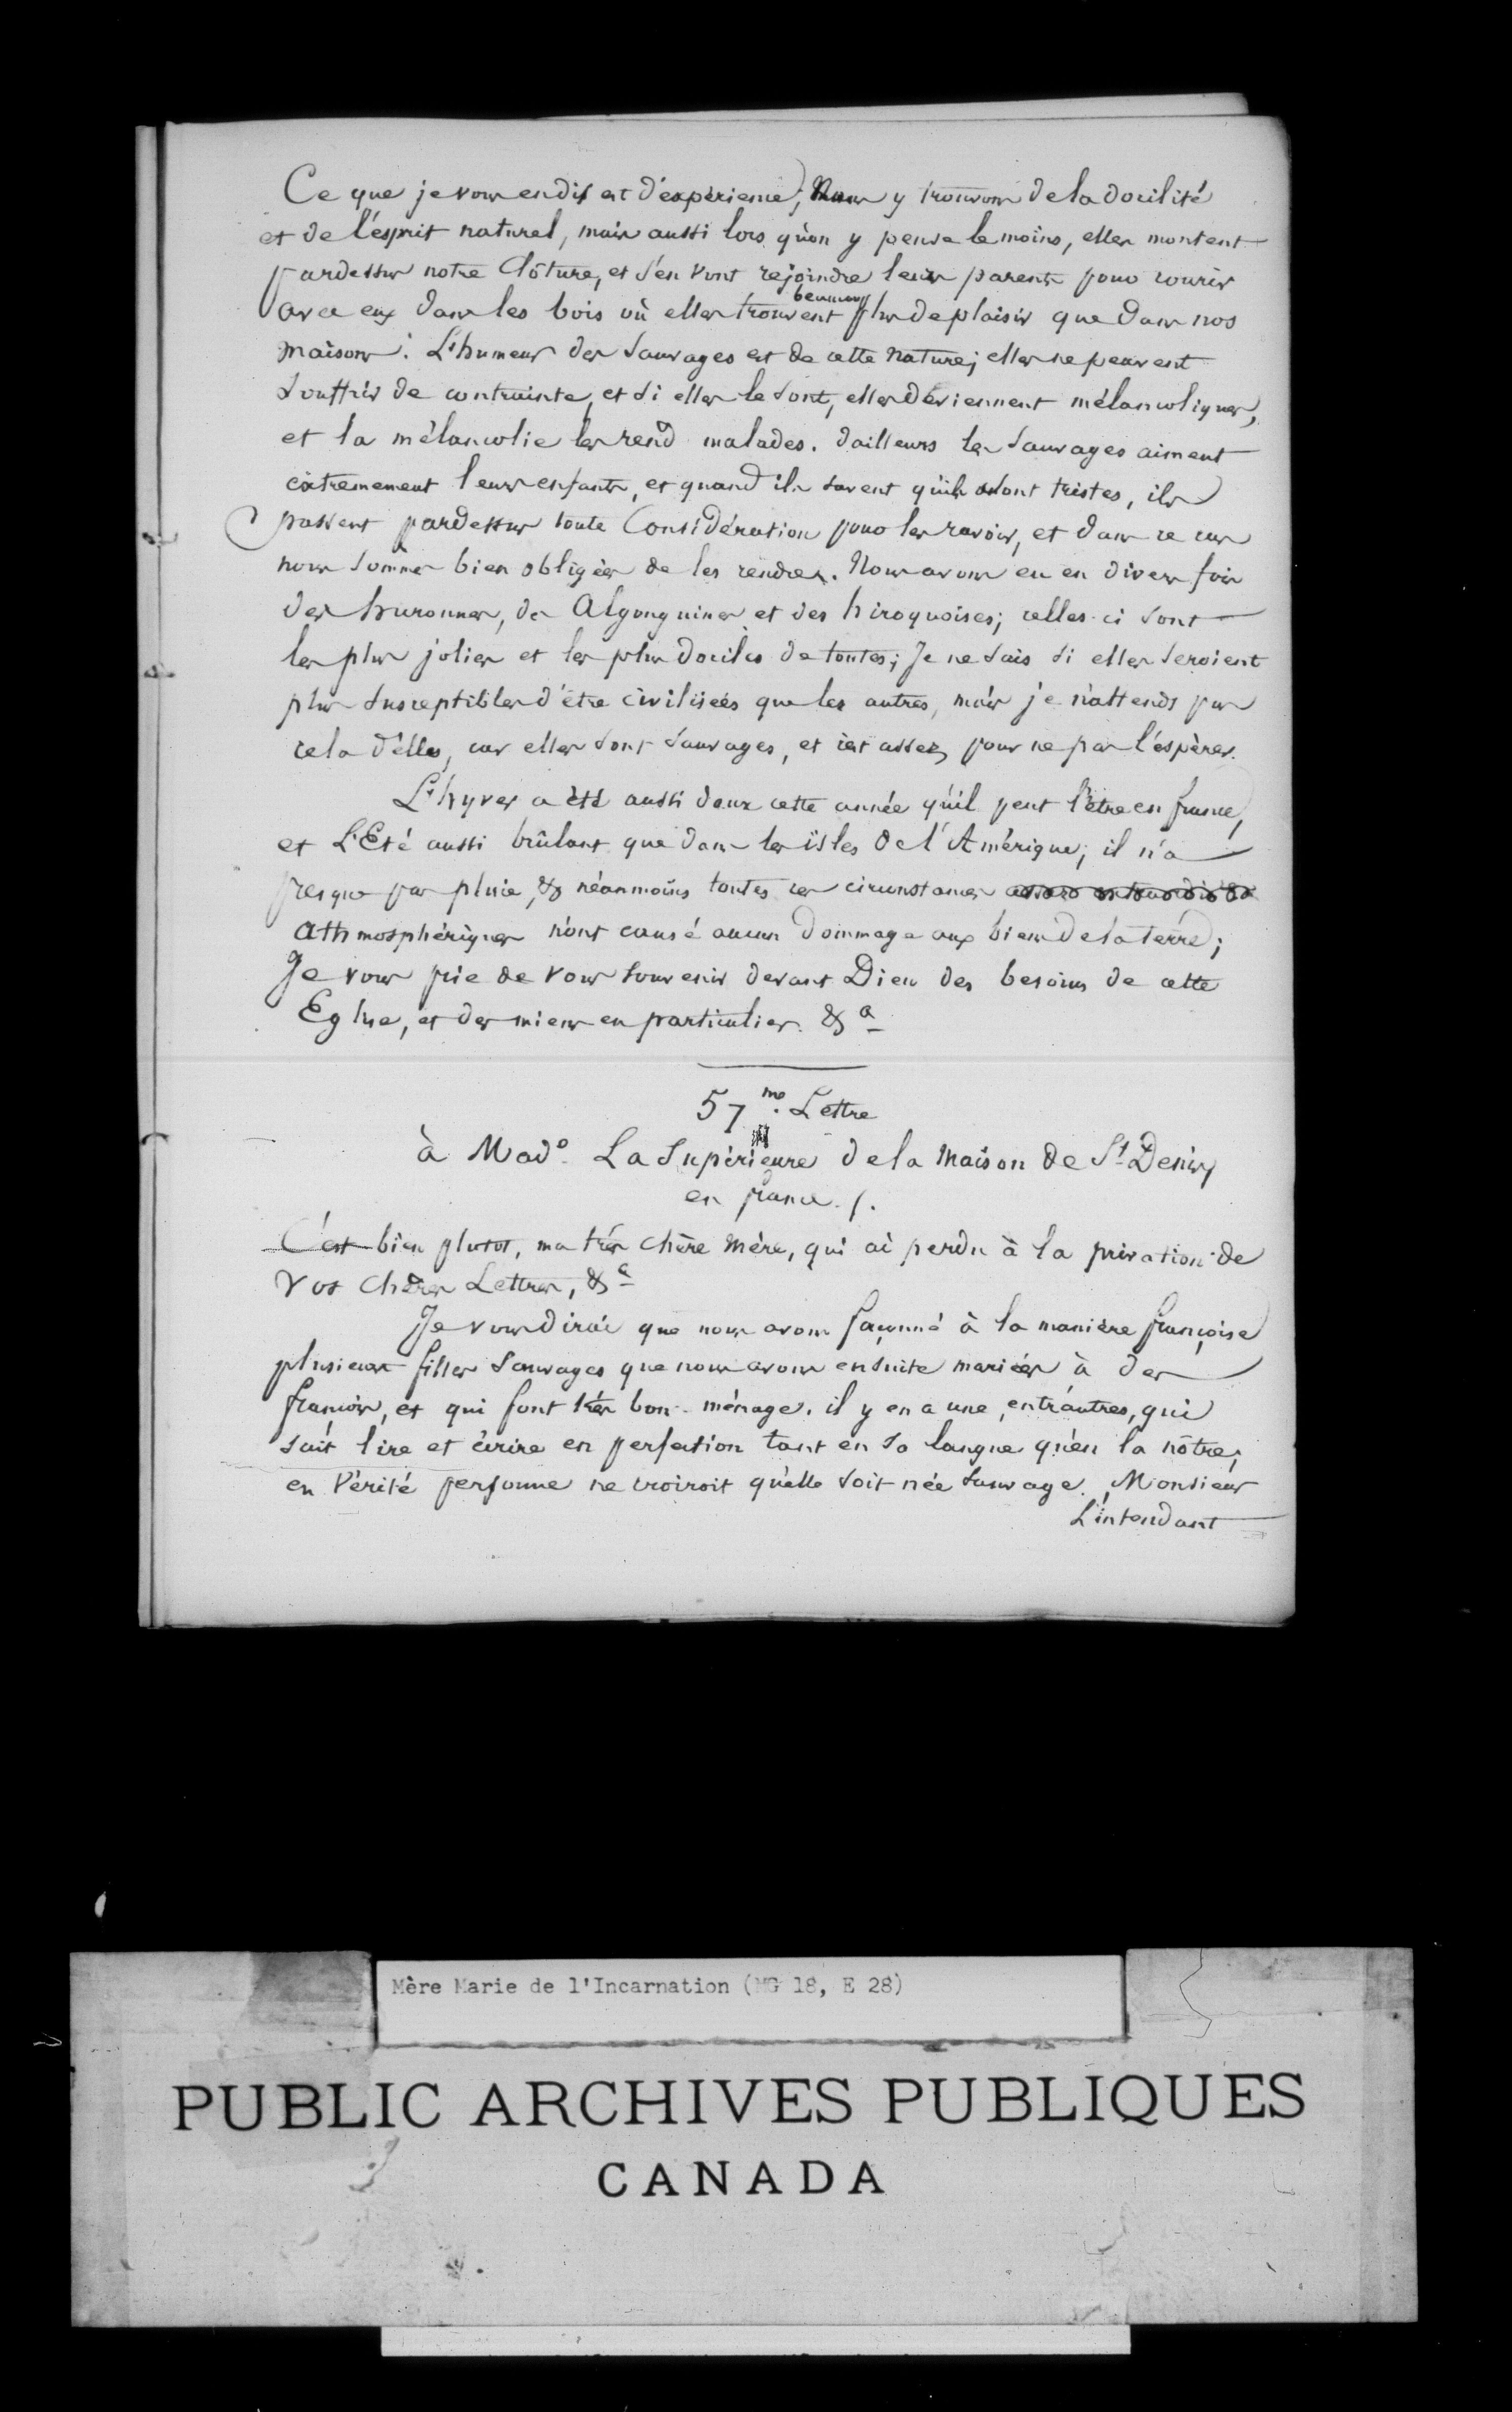 Ce que je vous en dis est d'expérience; Nous y trouvons de la docilité
et de l'ésprit naturel, mais aussi lors qu'on y pense le moins, elles montent
pardessus notre Clôture, et s'en vont rejoindre leurs parents pour courir
avec eux dans les bois où elles trouvent beaucoup plus de plaisir que dans nos
maisons. L'humeur des Sauvages est de cette nature; elles ne peuvent
Souffrir de contrainte, et si elles le sont, elles déviennent mélancoliques,
et la mélancolie les rend malades. dailleurs les Sauvages aiment
éxtremement leurs enfants, et quand ils savent qu'ils sont tristes, ils
passent pardessus toute Considération pour les ravoir, et dans ce cas
nous sommes bien obligées de les rendres. Nous avons eu en divers fois
des huronnes, des Algonquines et des hiroquoises; celles-ci sont
les plus jolies et les plus dociles de toutes; Je ne sais si elles seroient
plus susceptibles d'être civilisées que les autres, mais je n'attends pas
cela d'elles, car elles sont Sauvages, et c'est assez pour ne pas l'éspèrer.
L'hyver a été aussi doux cette année qu'il peut l'être en france,
et L'Eté aussi brûlant que dans les isles de l'Amérique; il n'a
presque pas pluie, & néanmoins toutes ces circonstances
athmosphériques n'ont causé aucun dommage aux biens de la terre;
Je vous prie de vous souvenir devant Dieu des besoins de cette
Eglise, et des miens en particulier. &a
57me. Lettre
à Made. La Supérieure de la Maison de St. Denis,
en france. /.
C'est bien plutot, ma trés chère Mère, qui ai perdu à la privation de
Vos chères Lettres, &a
Je vous dirai que nous avons façonné à la manière françoise
plusieurs filles Sauvages que nous avons ensuite mariées à des
françois, et qui font trés bon ménage. il y en a une, entr'autres, qui
sait lire et écrire en perfection tant en sa langue qu'en la nôtre;
en Vérité personne ne croiroit qu'elle soit née Sauvage. Monsieur
L'intendant
Mère Marie de l'Incarnation (MG 18, E 28)
PUBLIC ARCHIVES PUBLIQUES
CANADA